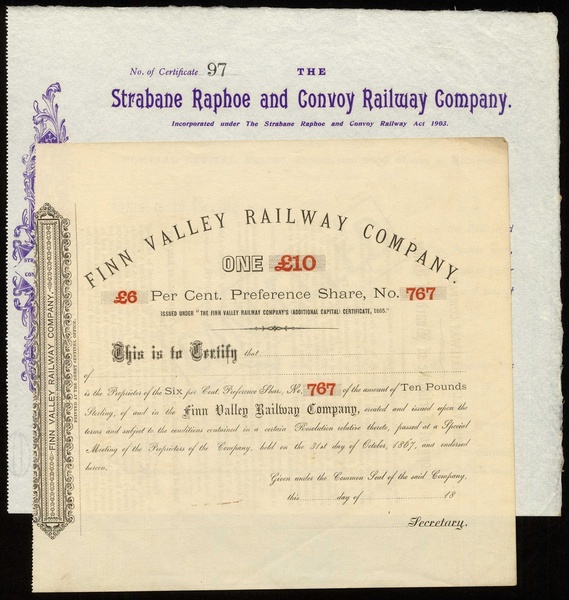 No. of Certificate 97
THE
Strabane Raphoe and Convoy Railway Company.
Incorporated under The Strabane Raphoe and Convoy Railway Act 1903.
FINN VALLEY RAILWAY COMPANY.
ONE £10
£6 Per Cent. Preference Share, No. 767
ISSUED UNDER "THE FINN VALLEY RAILWAY COMPANY'S (ADDITIONAL CAPITAL) CERTIFICATE, 1865."
This is to Certify that
of
is the Proprietor of the Six per Cent. Preference Share, No. 767 of the amount of Ten Pounds
Sterling, of and in the Finn Valley Railway Company, created and issued upon the
terms and subject to the conditions contained in a certain Resolution relative thereto, passed at a Special
Meeting of the Proprietors of the Company, held on the 31st day of October, 1867, and endorsed
hereon.
Given under the Common Seal of the said Company,
this day of 18
Secretary.
FINN VALLEY RAILWAY COMPANY.